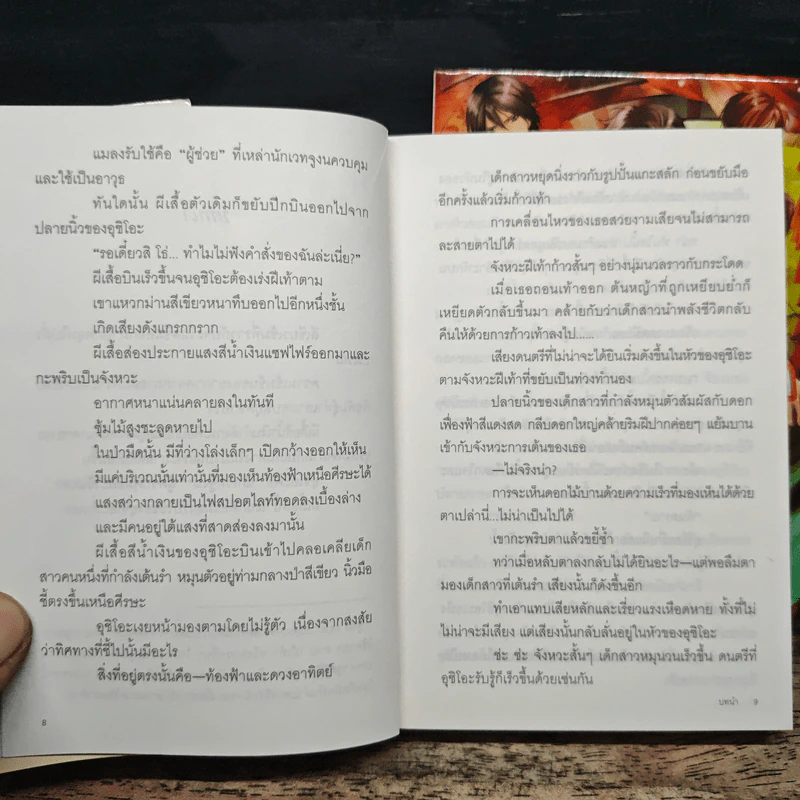 แมลงรับใช้คือ “ผู้ช่วย” ที่เหล่านักเวทจูงนควบคุม
และใช้เป็นอาวุธ
ทันใดนั้น ผีเสื้อตัวเดิมก็ขยับปีกบินออกไปจาก
ปลายนิ้วของอุชิโอะ
“รอเดี๋ยวสิ โธ่... ทำไมไม่ฟังคำสั่งของฉันล่ะเนี่ย?”
ผีเสื้อบินเร็วขึ้นจนอุชิโอะต้องเร่งฝีเท้าตาม
เขาแหวกม่านสีเขียวหนาทึบออกไปอีกหนึ่งชั้น
เกิดเสียงดังแกรกกราก
ผีเสื้อส่องประกายแสงสีน้ำเงินแซฟไฟร์ออกมาและ
กะพริบเป็นจังหวะ
อากาศหนาแน่นคลายลงในทันที
ซุ้มไม้สูงชะลูดหายไป
ในป่ามืดนั้น มีที่ว่างโล่งเล็กๆ เปิดกว้างออกให้เห็น
มีแค่บริเวณนั้นเท่านั้นที่มองเห็นท้องฟ้าเหนือศีรษะได้
แสงสว่างกลายเป็นไฟสปอตไลท์ทอดลงเบื้องล่าง
และมีคนอยู่ใต้แสงที่สาดส่องลงมานั้น
ผีเสื้อสีน้ำเงินของอุชิโอะบินเข้าไปคลอเคลียเด็ก
สาวคนหนึ่งที่กำลังเต้นรำ หมุนตัวอยู่ท่ามกลางป่าสีเขียว นิ้วมือ
ชี้ตรงขึ้นเหนือศีรษะ
อุชิโอะเงยหน้ามองตามโดยไม่รู้ตัว เนื่องจากสงสัย
ว่าทิศทางที่ชี้ไปนั้นมีอะไร
สิ่งที่อยู่ตรงนั้นคือ—ท้องฟ้าและดวงอาทิตย์
8
เด็กสาวหยุดนิ่งราวกับรูปปั้นแกะสลัก ก่อนขยับมือ
อีกครั้งแล้วเริ่มก้าวเท้า
การเคลื่อนไหวของเธอสวยงามเสียจนไม่สามารถ
ละสายตาไปได้
จังหวะฝีเท้าก้าวสั้นๆ อย่างนุ่มนวลราวกับกระโดด
เมื่อเธอถอนเท้าออก ต้นหญ้าที่ถูกเหยียบย่ำก็
เหยียดตัวกลับขึ้นมา คล้ายกับว่าเด็กสาวนำพลังชีวิตกลับ
คืนให้ด้วยการก้าวเท้าลงไป......
เสียงดนตรีที่ไม่น่าจะได้ยินเริ่มดังขึ้นในหัวของอุชิโอะ
ตามจังหวะฝีเท้าที่ขยับเป็นท่วงทำนอง
ปลายนิ้วของเด็กสาวที่กำลังหมุนตัวสัมผัสกับดอก
เฟื่องฟ้าสีแดงสด กลีบดอกใหญ่คล้ายริมฝีปากค่อยๆ แย้มบาน
เข้ากับจังหวะการเต้นของเธอ
—ไม่จริงน่า?
การจะเห็นดอกไม้บานด้วยความเร็วที่มองเห็นได้ด้วย
ตาเปล่านี่...ไม่น่าเป็นไปได้
เขากะพริบตาแล้วขยี้ซ้ำ
ทว่าเมื่อหลับตาลงกลับไม่ได้ยินอะไร—แต่พอลืมตา
มองเด็กสาวที่เต้นรำ เสียงนั้นก็ดังขึ้นอีก
ทำเอาแทบเสียหลักและเรี่ยวแรงเหือดหาย ทั้งที่ไม่
ไม่น่าจะมีเสียง แต่เสียงนั้นกลับลั่นอยู่ในหัวของอุชิโอะ
ช่ะ ช่ะ จังหวะสั้นๆ เด็กสาวหมุนวนเร็วขึ้น ดนตรีที่
อุชิโอะรับรู้ก็เร็วขึ้นด้วยเช่นกัน
บทนำ 9